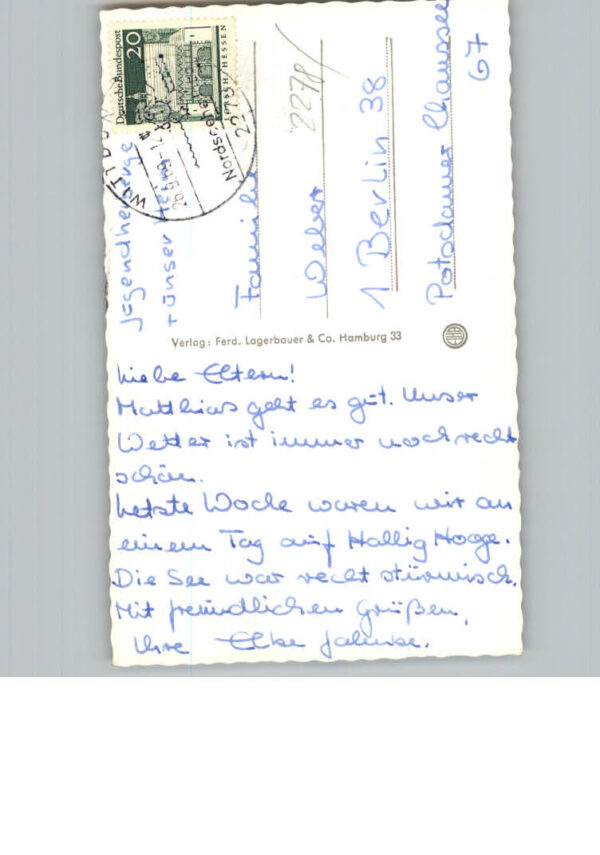 Deutsche Bundespost
20
LORSCH/HESSEN
WITTDÜN
26.9.69-1
Nordsee
2278
Jugendherberge
+ Unser Heim
2278/
Familie
Weber
1 Berlin 38
Potsdamer Chaussee
67
Verlag: Ferd. Lagerbauer & Co. Hamburg 33
Liebe Eltern!
Matthias geht es gut. Unser
Wetter ist immer noch recht
schön.
Letzte Woche waren wir an
einem Tag auf Hallig Hooge.
Die See war recht stürmisch.
Mit freundlichen Grüßen,
Ihre Elke Jahnke.